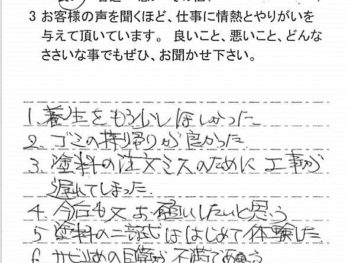 3 お客様の声を聞くほど、仕事に情熱とやりがいを
与えて頂いています。良いこと、悪いこと、どんな
ささいな事でもぜひ、お聞かせ下さい。
1. 養生をもう少しほしかった
2. ゴミの持帰りが良かった
3. 塗料の注文ミスのために工事が
遅れてしまった
4 今回も又お願いしたいと思う
5 塗料の二試しははじめて体験した
6 サビ止めの